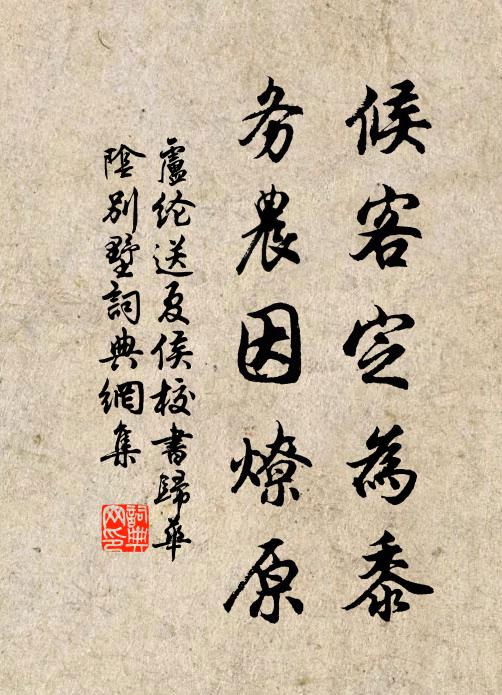 候客定為黍
务農因燎原
盧纶送夏侯校書歸華
陰別墅詞典網集
詞典網印